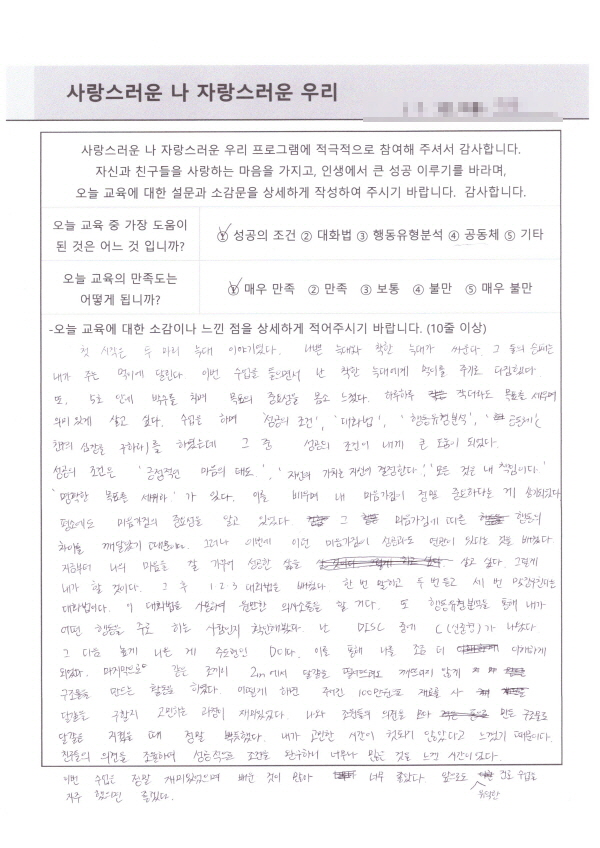 사랑스러운 나 자랑스러운 우리
사랑스러운 나 자랑스러운 우리 프로그램에 적극적으로 참여해 주셔서 감사합니다.
자신과 친구들을 사랑하는 마음을 가지고, 인생에서 큰 성공 이루기를 바라며,
오늘 교육에 대한 설문과 소감문을 상세하게 작성하여 주시기 바랍니다. 감사합니다.
오늘 교육 중 가장 도움이
된 것은 어느 것 입니까?
① 성공의 조건 ② 대화법 ③ 행동유형분석 ④ 공동체 ⑤ 기타
오늘 교육의 만족도는
어떻게 됩니까?
① 매우 만족 ② 만족 ③ 보통 ④ 불만 ⑤ 매우 불만
-오늘 교육에 대한 소감이나 느낀 점을 상세하게 적어주시기 바랍니다. (10줄 이상)
첫 시작은 두 마리 늑대 이야기였다. 나쁜 늑대와 착한 늑대가 싸운다. 그 둘의 승패는
내가 주는 먹이에 달린다. 이번 수업을 들으면서 난 착한 늑대에게 먹이를 주기로 다짐했다.
또, 5초 안에 박수를 치며 목표의 중요성을 몸소 느꼈다. 하루하루 작더라도 목표를 세우며
의미있게 살고 싶다. 수업을 하며 '성공의 조건', '대화법', '행동유형분석',
친구의 심장을 구하라!'를 하였는데 그 중 성공의 조건이 내게 큰 도움이 되었다.
성공의 조건은 '긍정적인 마음의 태도.', '자신의 가치는 자신이 결정한다', '모든 것은 내 책임이다.'
'명확한 목표를 세워라.'가 있다. 이를 배우며 내 마음가짐이 정말 중요하다는 게 생각되었다.
평소에도 마음가짐의 중요성을 알고 있었다. 그 마음가짐에 따른 행동의
차이를 깨달았기 때문이다. 그러나 이번에 이런 마음가짐이 성공과도 연관이 있다는 것을 배웠다.
지금부터 나의 마음을 잘 가꾸어 성공한 삶을 살고 싶다. 그렇게
내가 할 것이다. 그 후 1·2·3 대화법을 배웠다. 한 번 말하고 두 번 듣고 세 번 맞장구친다는
대화법이다. 이 대화법을 사용하여 원만한 의사소통을 할 거다. 또 행동유형분석을 통해 내가
어떤 행동을 주로 하는 사람인지 확인해봤다. 난 DISC 중에 C(신중형)가 나왔다.
그 다음 높게 나온 게 주도형인 D이다. 이를 통해 나를 조금 더 이해하게
되었다. 마지막으로 같은 조끼리 2m에서 달걀을 떨어뜨려도 깨뜨리지 않게
구조물을 만드는 활동을 하였다. 어떻게 하면 주어진 100만원으로 재료를 사
달걀을 구할지 고민하는 과정이 재미있었다. 나와 조원들의 의견을 모아 만든 구조물로
달걀을 지켰을 때 정말 뿌듯했다. 내가 고민한 시간이 헛되지 않았다고 느꼈기 때문이다.
친구들의 의견을 조율하여 성공적으로 조건을 완수하니 너무나 많은 것을 느낀 시간이었다.
이번 수업은 정말 재미있었으며 배운 것이 많아 너무 좋았다. 앞으로도 진로 수업을
자주 했으면 좋겠다.